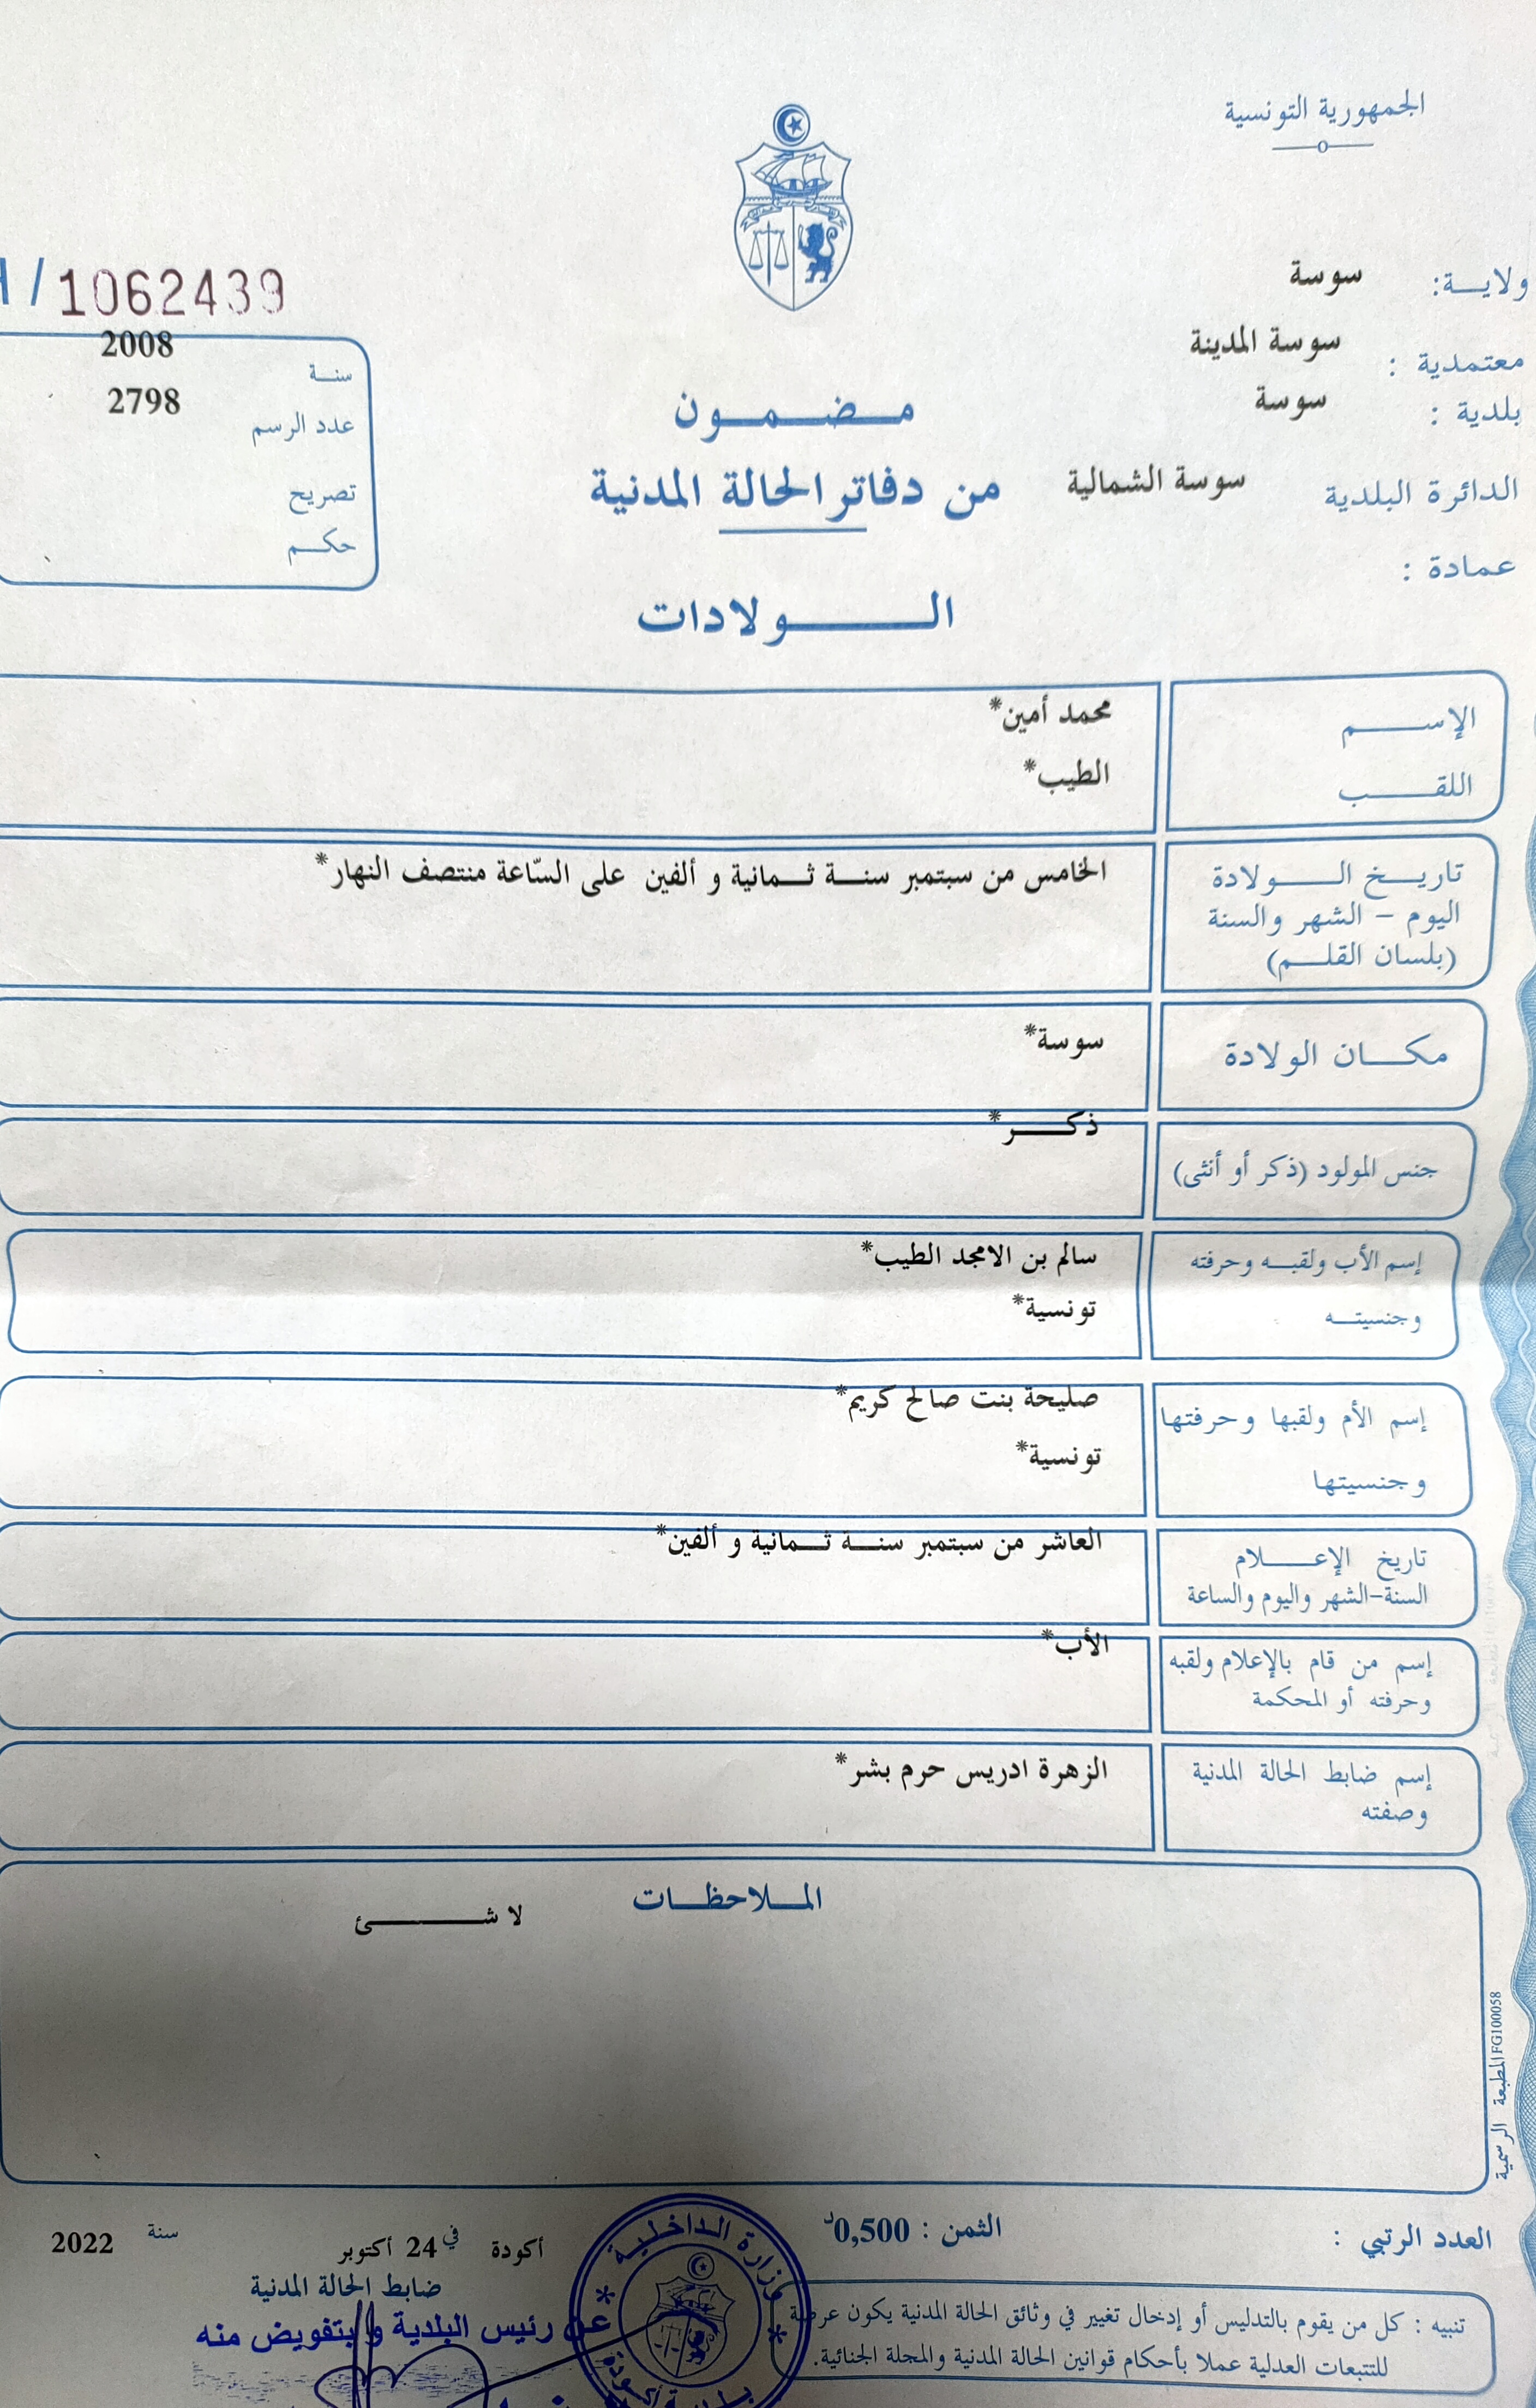 الجمهورية التونسية
ولايــة: سوسة
معتمدية : سوسة المدينة
بلدية : سوسة
الدائرة البلدية سوسة الشمالية
عمادة :
/1062439
سنة 2008
عدد الرسم 2798
تصريح
حكم
مضمون
من دفاتر الحالة المدنية
الولادات
الإسم محمد أمين*
اللقب الطيب*
تاريخ الولادة الخامس من سبتمبر سنة ثمانية و ألفين على السّاعة منتصف النهار*
اليوم - الشهر والسنة
(بلسان القلم)
مكان الولادة سوسة*
جنس المولود (ذكر أو أنثى) ذكر*
إسم الأب ولقبه وحرفته سالم بن الامجد الطيب*
وجنسيته تونسية*
إسم الأم ولقبها وحرفتها صليحة بنت صالح كريم*
وجنسيتها تونسية*
تاريخ الإعلام العاشر من سبتمبر سنة ثمانية و ألفين*
السنة-الشهر واليوم والساعة
إسم من قام بالإعلام ولقبه الأب*
وحرفته أو المحكمة
إسم ضابط الحالة المدنية الزهرة ادريس حرم بشر*
وصفته
الملاحظات
لا شئ
المطبعة الرسمية FG100058
العدد الرتبي :
الثمن : 0,500د
أكودة في 24 أكتوبر سنة 2022
ضابط الحالة المدنية
عن رئيس البلدية و بتفويض منه
وزارة الداخلية
بلدية أكودة
تنبيه : كل من يقوم بالتدليس أو إدخال تغيير في وثائق الحالة المدنية يكون عرضة
للتتبعات العدلية عملا بأحكام قوانين الحالة المدنية والمجلة الجنائية.